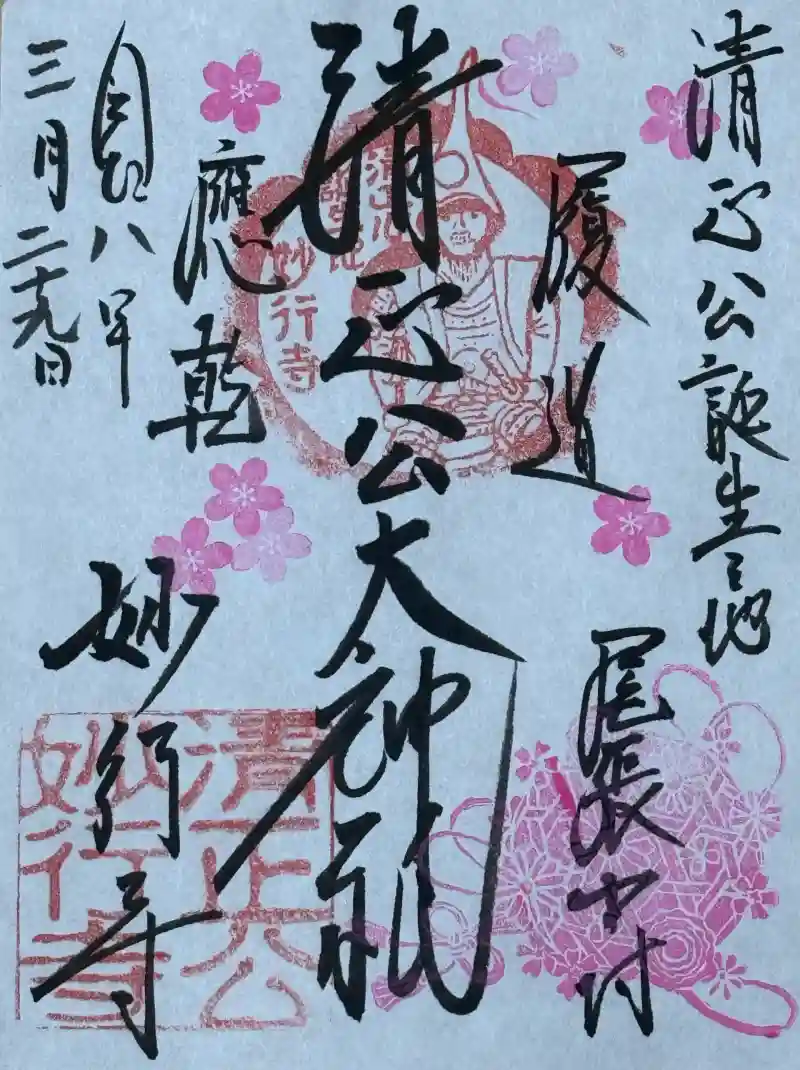 清正公誕生之地
履道
應乾
尾張中村
清正公大神祇
妙行寺
八年
三月二十九日
清正公
誕生地
妙行寺
清正公
妙行寺